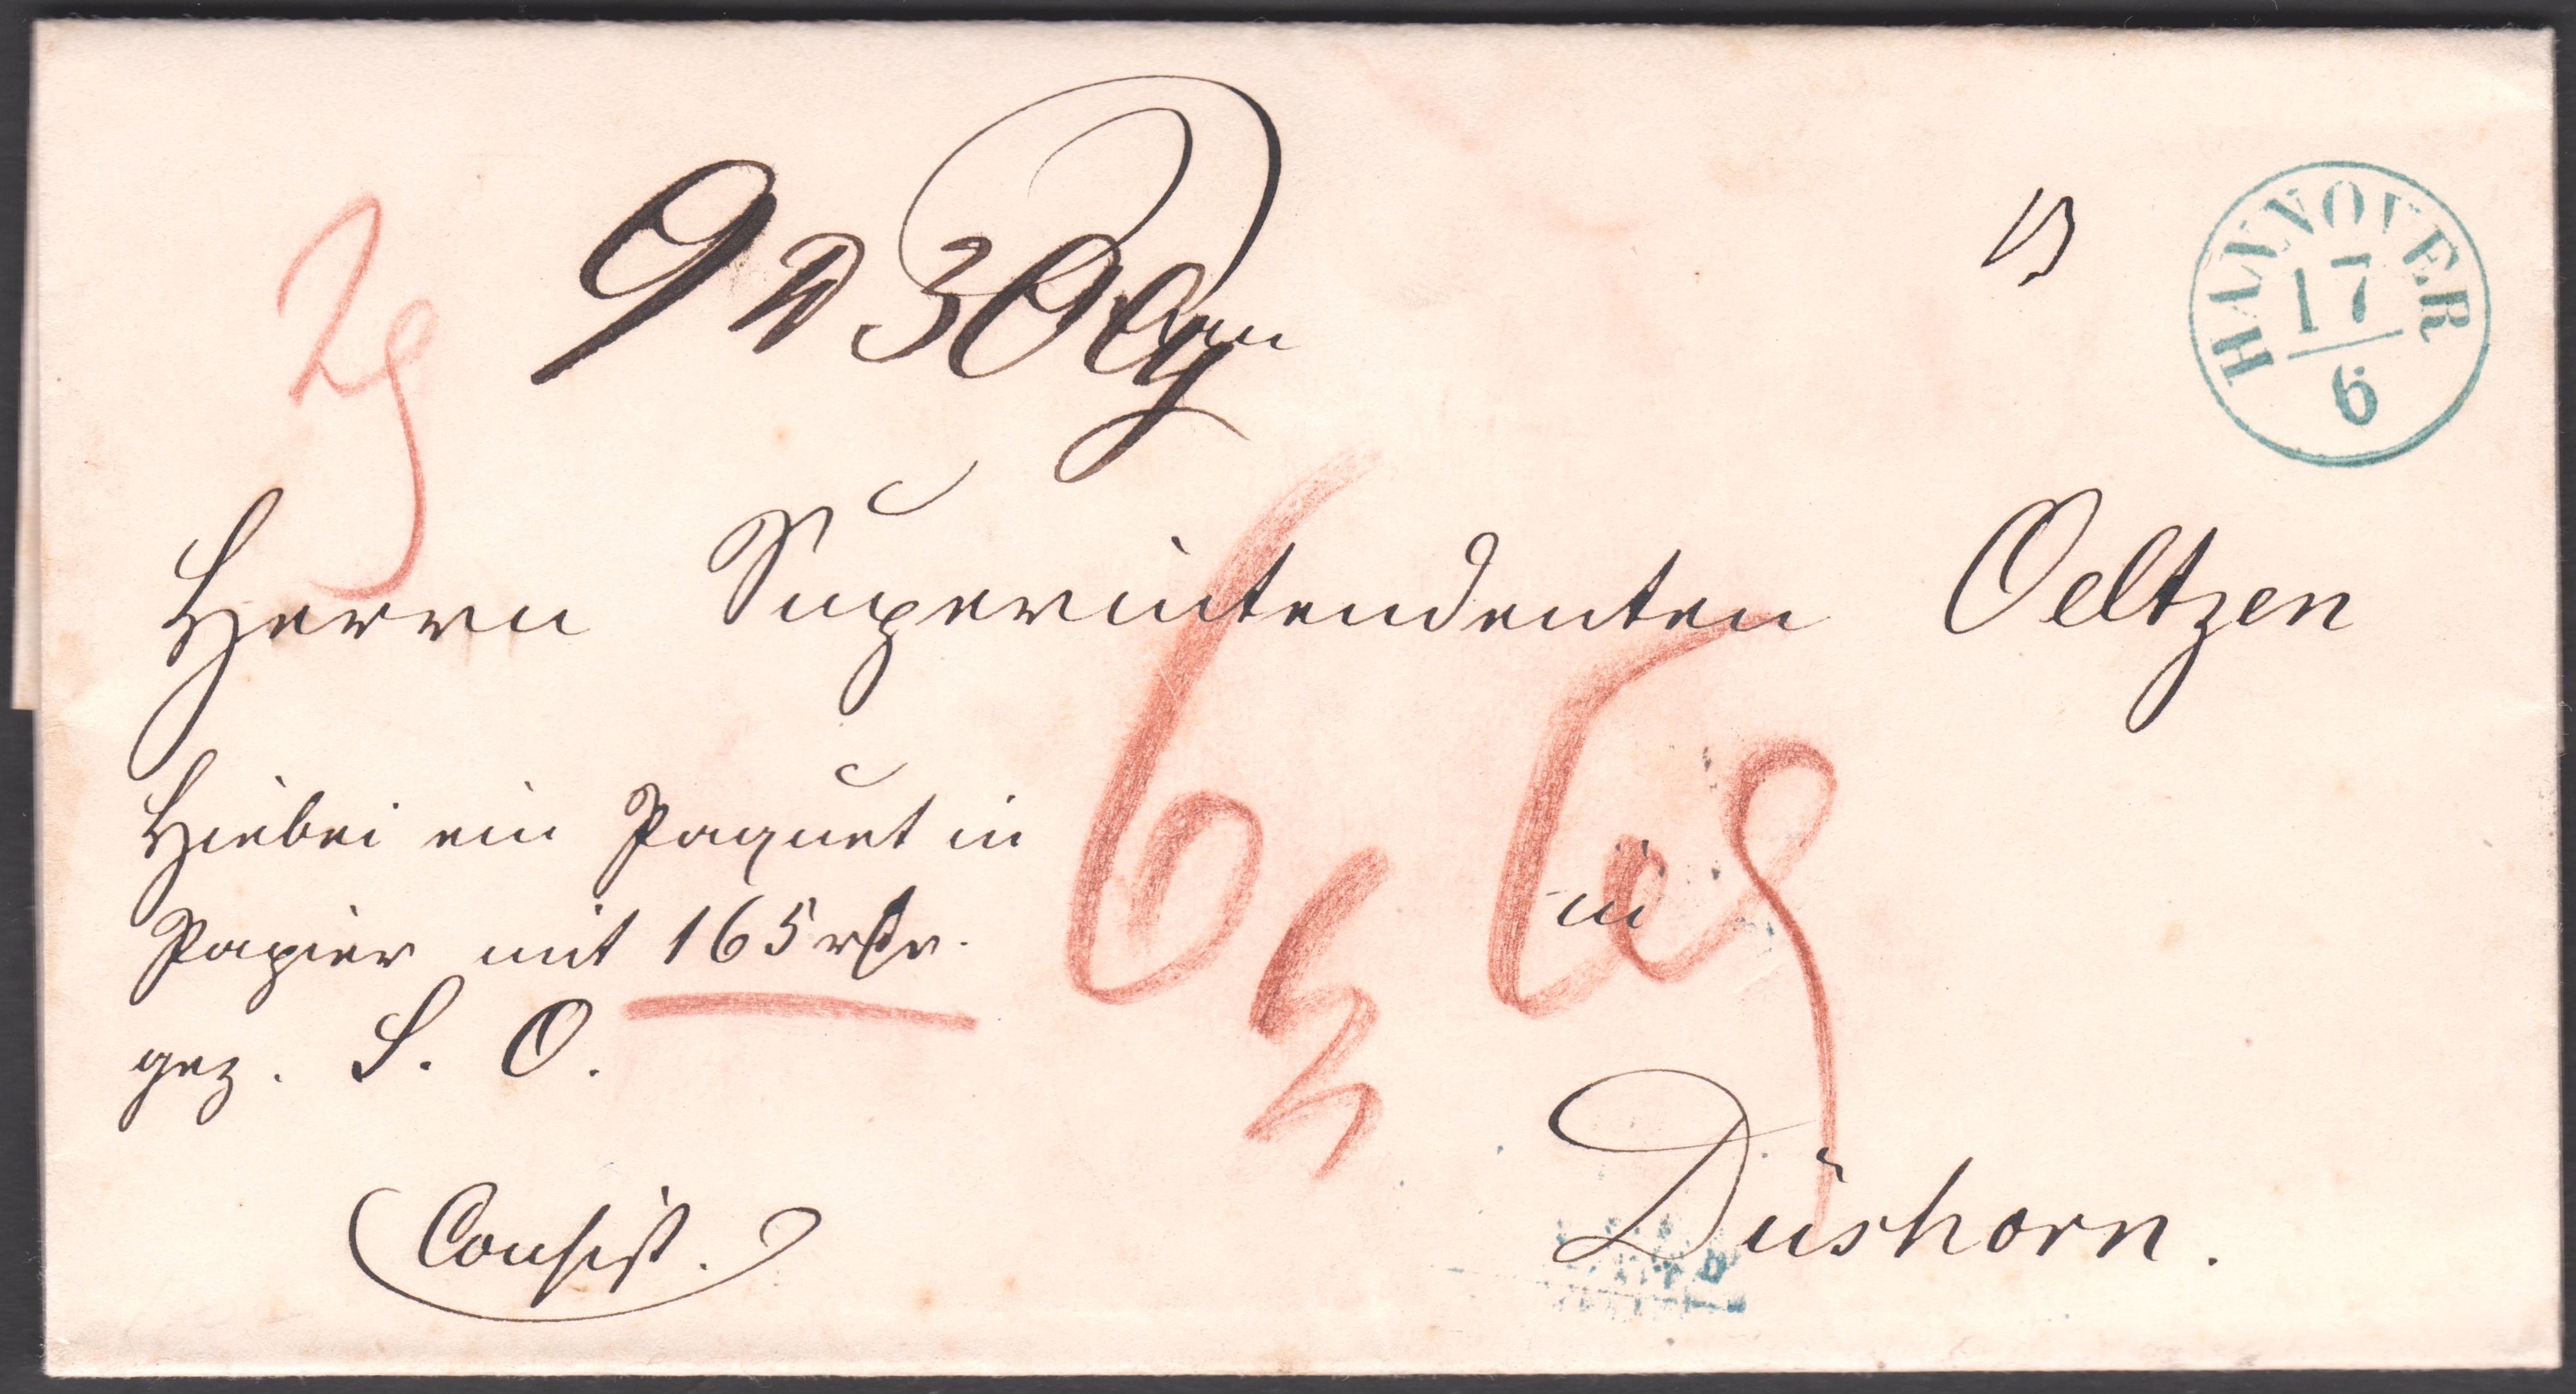 HANNOVER
17
6
Herrn Superintendenten Oeltzen
Hiebei ein Paquet in
Papier mit 165 rtlr.
gez. S. O.
in
Düshorn.
Consist.